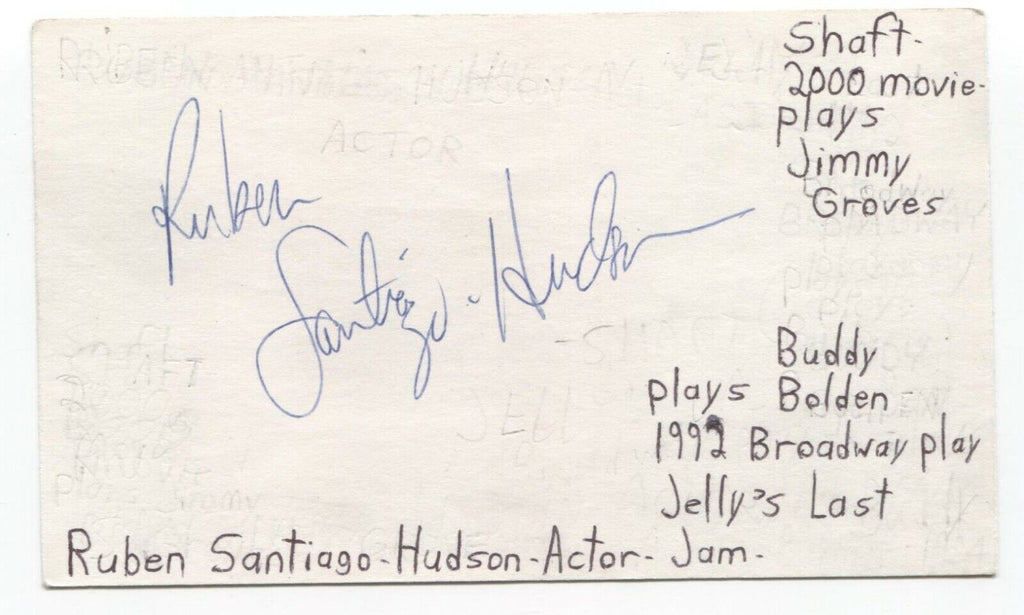 Shaft-
2000 movie-
plays
Jimmy
Groves
ACTOR
Ruben
Santiago-Hudson
Buddy
plays Bolden
1992 Broadway play
Jelly's Last
Ruben Santiago-Hudson-Actor-Jam-